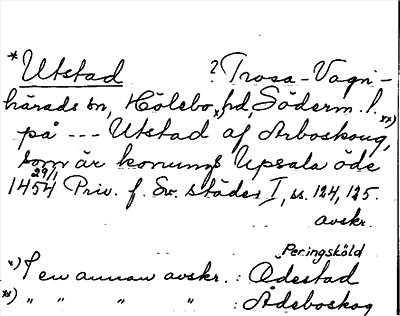 *Utstad ? Trosa-Vagn-
härads sn, Hölebo hd, Söderm. l.
på --- Utstad af Arboskoug,
som är konungs Upsala öde
29/1
1454 Priv. f. Sv. städer I, ss. 124, 125.
avskr.
Peringsköld
x) I en annan avskr. : Ødestad
xx) " " " " : Ådeboskog